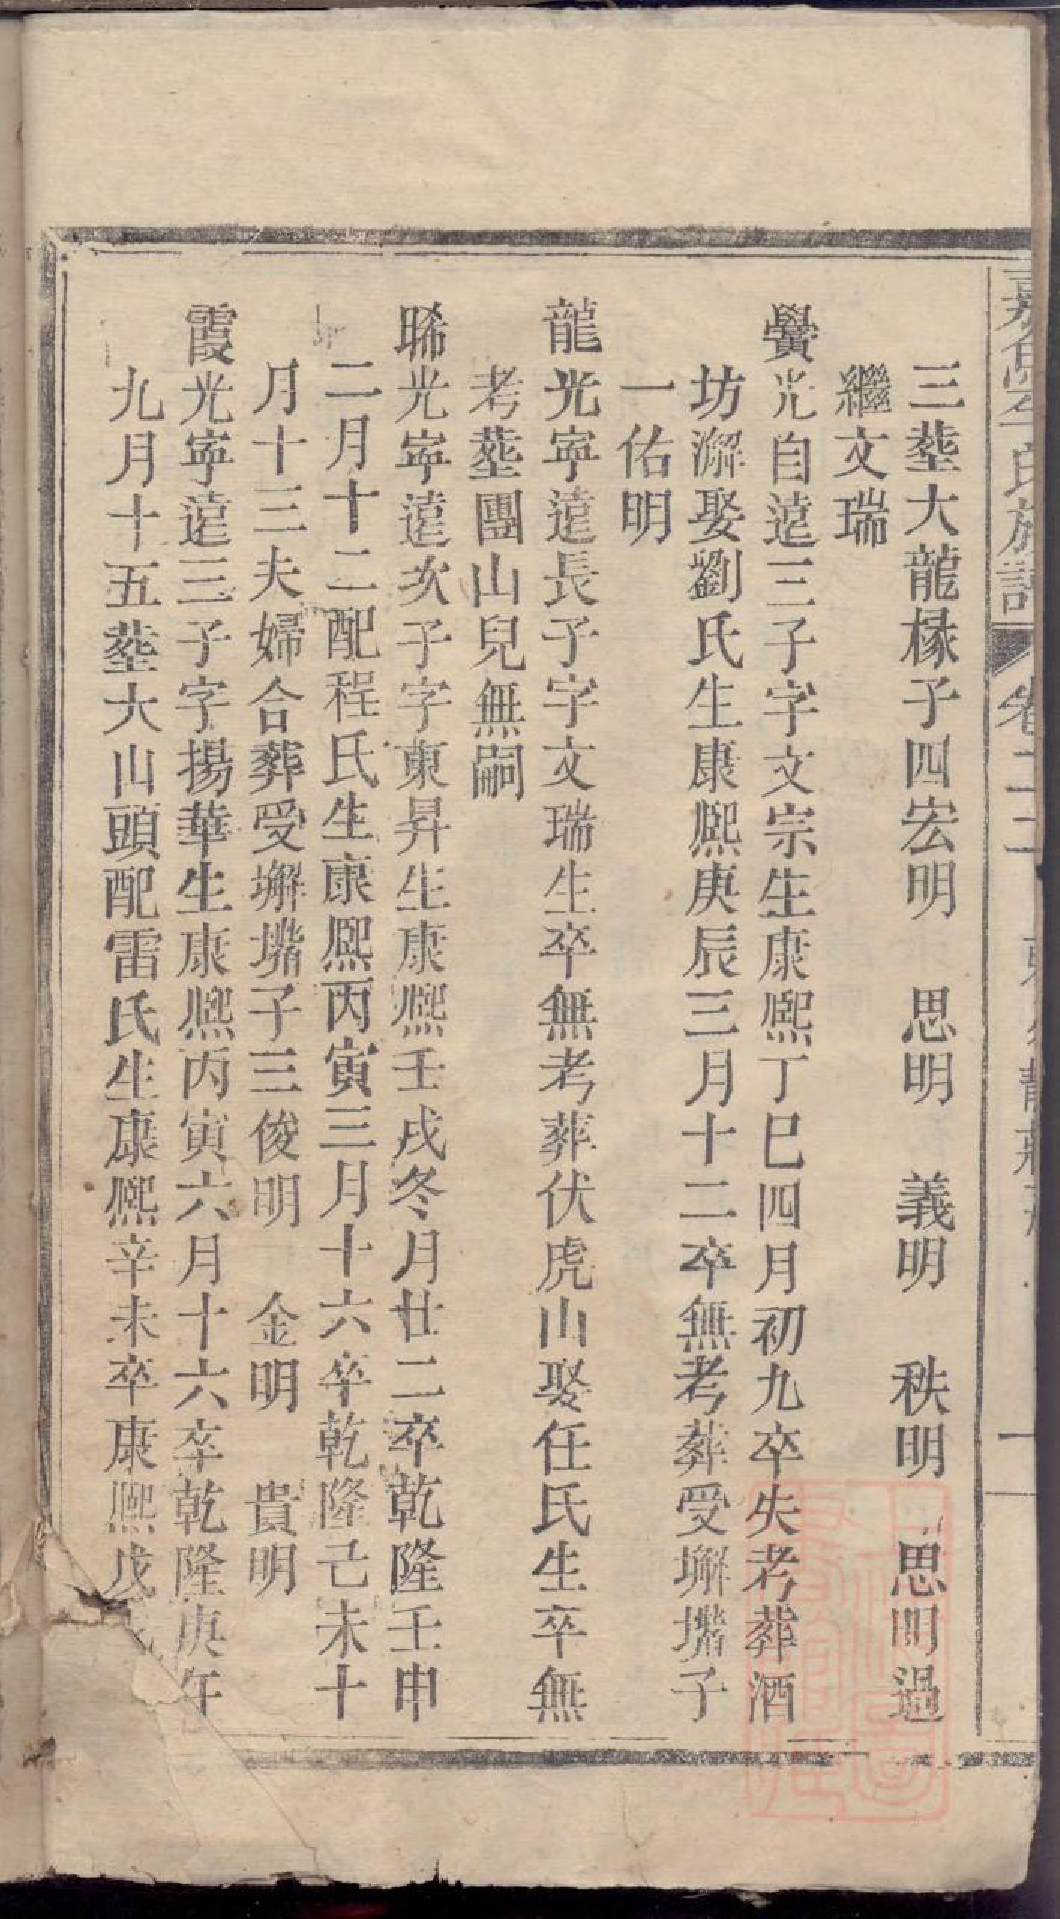 三塟大龍椽子四宏明　思明　義明　秩明　思明過
繼文瑞
黌光自遠三子字文宗生康熙丁巳四月初九卒失考葬酒
坊澥娶劉氏生康熙庚辰三月十二卒無考葬受塀壪子
一佑明
龍光寧遠長子字文瑞生卒無考葬伏虎山娶任氏生卒無
考塟團山兒無嗣
晞光寧遠次子字東昇生康熙壬戌冬月廿二卒乾隆壬申
二月十二配程氏生康熙丙寅三月十六卒乾隆己未十
月十三夫婦合葬受子三俊明　金明　貴明
霞光寧遠三子字揚華生康熙丙寅六月十六卒乾隆庚午
九月十五塟大山頭配雷氏生康熙辛未卒康熙戊
氏族譜 卷二